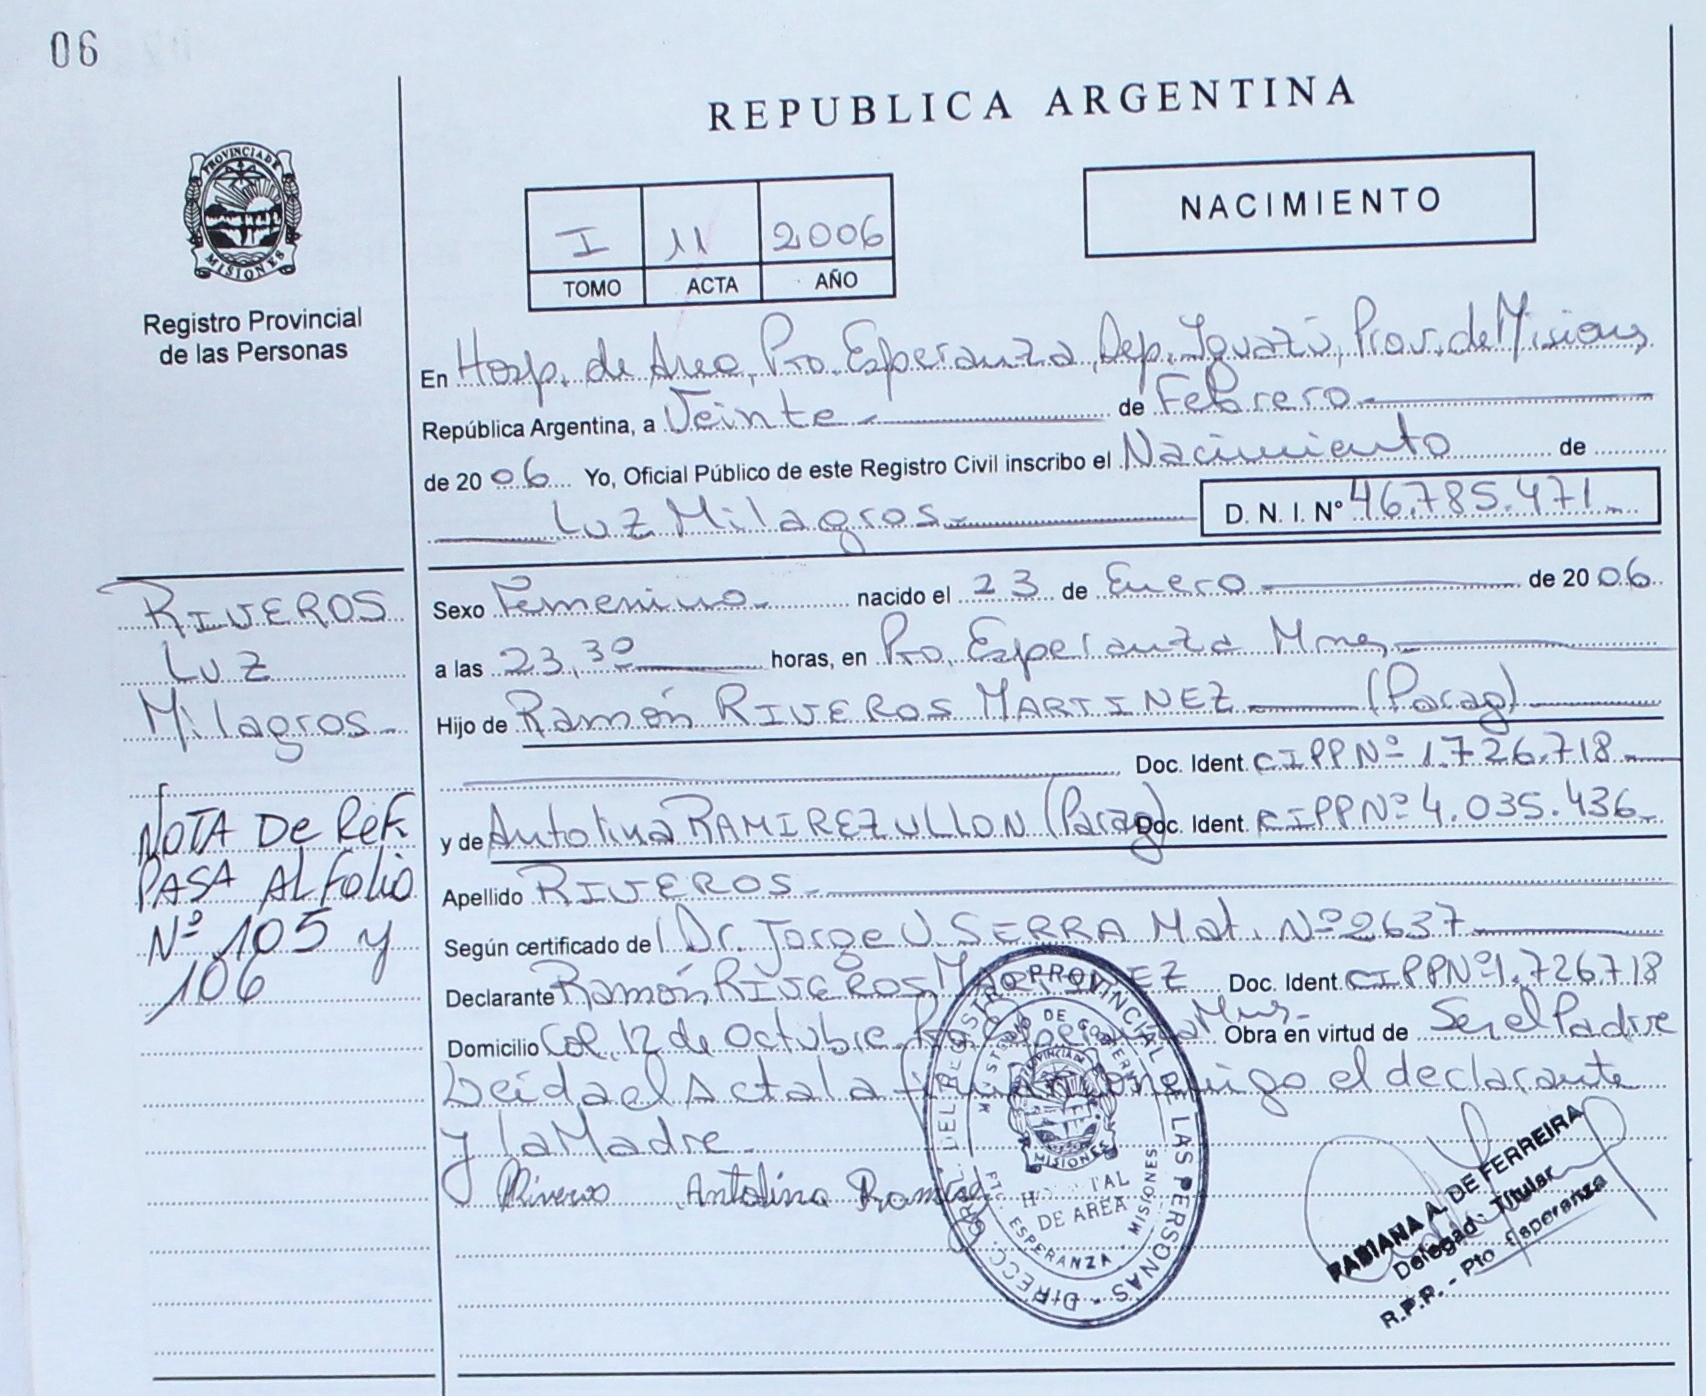 06
REPUBLICA ARGENTINA
PROVINCIA DE
MISIONES
Registro Provincial
de las Personas
I 11 2006
TOMO ACTA AÑO
NACIMIENTO
En Hosp. de Area, Pto. Esperanza, Dep. Iguazú, Prov. de Misiones,
República Argentina, a Veinte de Febrero
de 20 06 Yo, Oficial Público de este Registro Civil inscribo el Nacimiento de
Luz Milagros D. N. I. Nº 46.785.471
Sexo Femenino nacido el 23 de Enero de 20 06
a las 23,30 horas, en Pto. Esperanza Mnes
Hijo de Ramón RIVEROS MARTINEZ (Parag)
Doc. Ident. CIPPNº 1.726.718
y de Antolina RAMIREZ ULLON (Parag) Doc. Ident. CIPPNº 4.035.436
Apellido RIVEROS
Según certificado de Dr. Jorge U. SERRA Mat. Nº 2637
Declarante Ramón RIVEROS MARTINEZ Doc. Ident. CIPPNº 1.726.718
Domicilio Col. 12 de Octubre Pto Esperanza Mnes Obra en virtud de Ser el Padre
Leída el Acta la firman conmigo el declarante
y la Madre
Riveros Antolina Ramirez
RIVEROS
Luz
Milagros
NOTA De Ref.
PASA AL Folio
Nº 105 y
106
DIRECC. GRAL. DEL REGISTRO PROVINCIAL DE LAS PERSONAS
MINISTERIO DE GOBIERNO
PROVINCIA DE
MISIONES
HOSPITAL
DE AREA
PTO. ESPERANZA - MISIONES
FABIANA A. DE FERREIRA
Delegada Titular
R.P.P. - Pto Esperanza